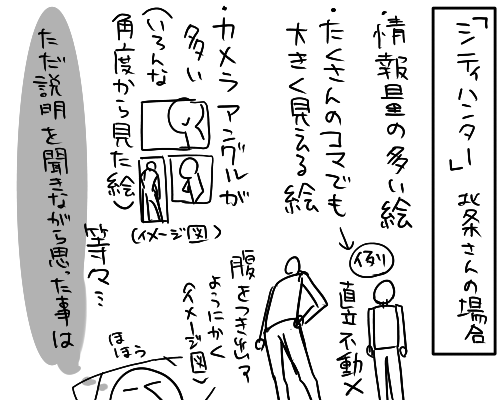 「シティハンター」北条さんの場合
・情報量の多い絵
・たくさんのコマでも
大きく見える絵
例
直立不動×
腹をつき出す
ようにかく
(イメージ図)
・カメラアングルが
多い
(いろんな
角度から見た絵)
(イメージ図)
等々…
ただ説明を聞きながら思った事は
ほほう